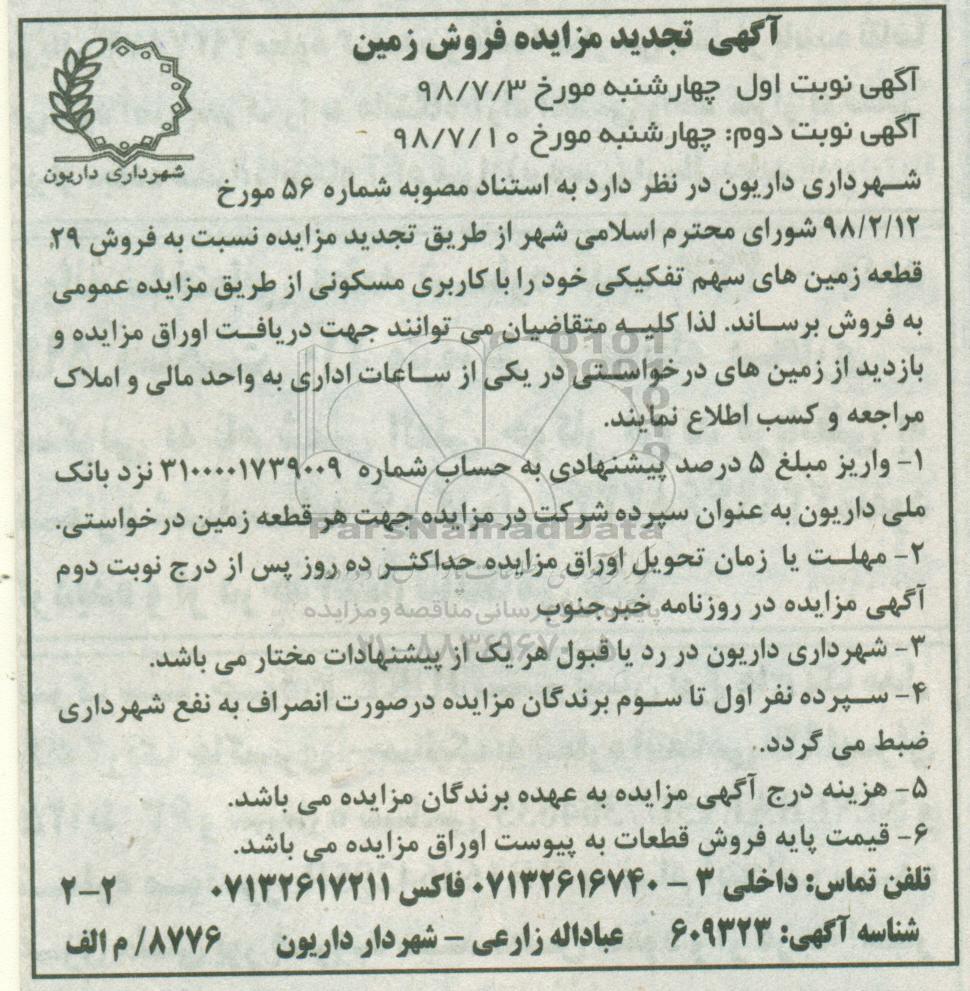 آگهی تجدید مزایده فروش زمین
آگهی نوبت اول چهارشنبه مورخ ۹۸/۷/۳
آگهی نوبت دوم: چهارشنبه مورخ ۹۸/۷/۱۰
شهرداری داریون
شهرداری داریون در نظر دارد به استناد مصوبه شماره ۵۶ مورخ
۹۸/۲/۱۲ شورای محترم اسلامی شهر از طریق تجدید مزایده نسبت به فروش ۲۹
قطعه زمین های سهم تفکیکی خود را با کاربری مسکونی از طریق مزایده عمومی
به فروش برساند. لذا کلیه متقاضیان می توانند جهت دریافت اوراق مزایده و
بازدید از زمین های درخواستی در یکی از ساعات اداری به واحد مالی و املاک
مراجعه و کسب اطلاع نمایند.
۱- واریز مبلغ ۵ درصد پیشنهادی به حساب شماره ۳۱۰۰۰۰۱۷۳۹۰۰۹ نزد بانک
ملی داریون به عنوان سپرده شرکت در مزایده جهت هر قطعه زمین درخواستی.
ParsNamadData
۲- مهلت یا زمان تحویل اوراق مزایده حداکثر ده روز پس از درج نوبت دوم
آگهی مزایده در روزنامه خبرجنوب
۳- شهرداری داریون در رد یا قبول هر یک از پیشنهادات مختار می باشد.
۴- سپرده نفر اول تا سوم برندگان مزایده درصورت انصراف به نفع شهرداری
ضبط می گردد.
۵- هزینه درج آگهی مزایده به عهده برندگان مزایده می باشد.
۶- قیمت پایه فروش قطعات به پیوست اوراق مزایده می باشد.
تلفن تماس: داخلی ۳ - ۰۷۱۳۲۶۱۶۷۴۰ فاکس ۰۷۱۳۲۶۱۷۲۱۱ ۲-۲
شناسه آگهی: ۶۰۹۳۲۳ عباداله زارعی - شهردار داریون ۸۷۷۶/ م الف